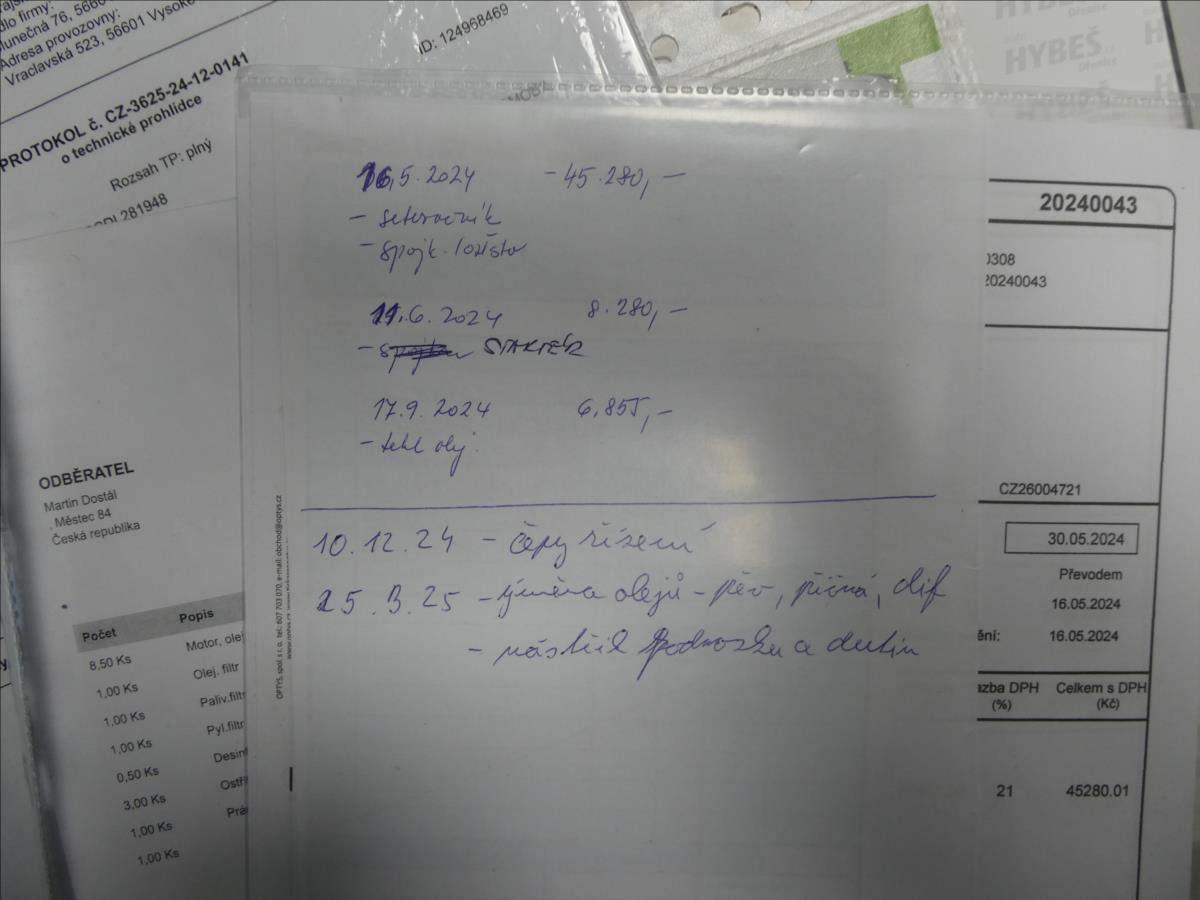 dlo firmy:
lunečná 76, 5660
Adresa provozovny:
Vraclavská 523, 56601 Vysoké
ID: 124968469
PROTOKOL č. CZ-3625-24-12-0141
o technické prohlídce
Rozsah TP: plný
281948
HYBEŠ
16.5.2024 - 45.280,-
- setrvačník
- spojk. ložisko
11.6.2024 8.280,-
- STARTÉR
17.9.2024 6.855,-
- tekl olej.
10.12.24 - čepy řízení
25.3.25 - výměna olejů - přev, příčná, dif
- nástřik podvozku a dutin
20240043
0308
20240043
CZ26004721
30.05.2024
Převodem
16.05.2024
ění: 16.05.2024
azba DPH Celkem s DPH
(%) (Kč)
21 45280.01
ODBĚRATEL
Martin Dostál
, Městec 84
Česká republika
Počet Popis
8,50 Ks Motor, ole
1,00 Ks Olej. filtr
1,00 Ks Paliv.filtr
1,00 Ks Pyl.filtr
0,50 Ks Desin
3,00 Ks Ostři
1,00 Ks Prá
1,00 Ks
OPTYS, spol. s r.o. tel.: 607 703 070, e-mail: obchod@optys.cz